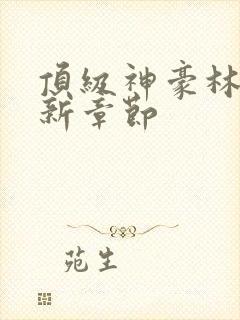 頂級神豪林
新章節
苑生